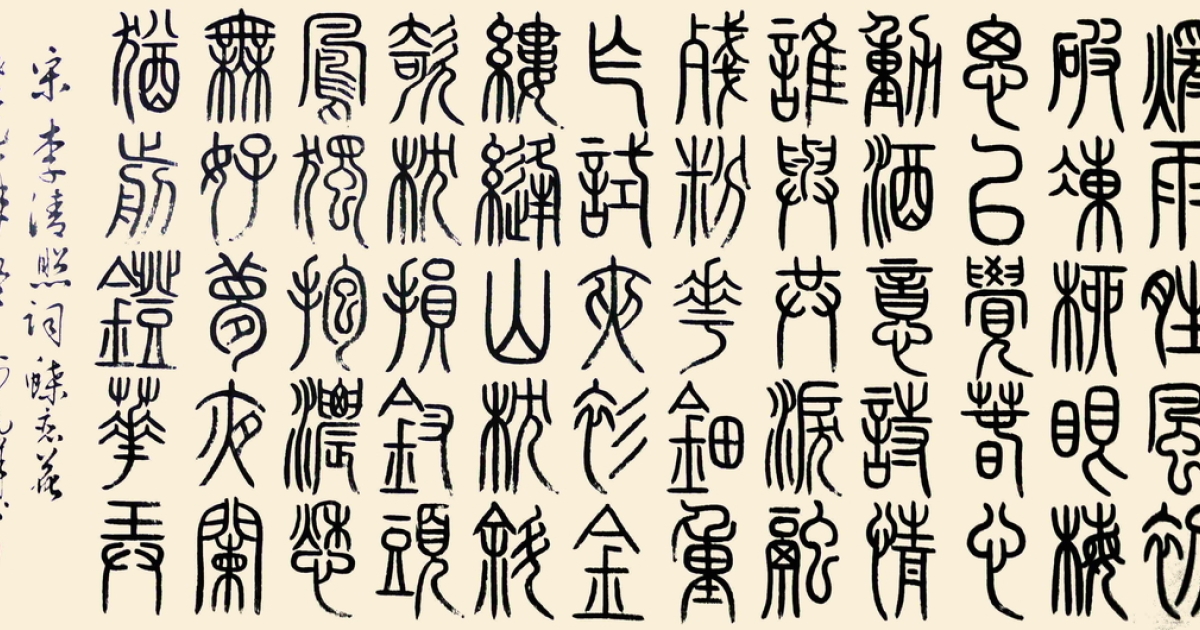 煖雨晴風初
破凍柳眼梅
思已覺春心
動酒意詩情
誰與共淚融
殘粉花鈿重
乍試夾衫金
縷縫山枕斜
攲枕損釵頭
鳳獨抱濃愁
無好夢夜闌
猶剪鐙華弄
宋李清照詞蝶恋花